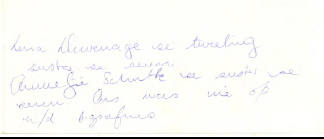 Lena Duvenage se tweeling
suster se seun.
Annetjie Schutte se suster se
seun Ons was nie op
n/d begrafnis